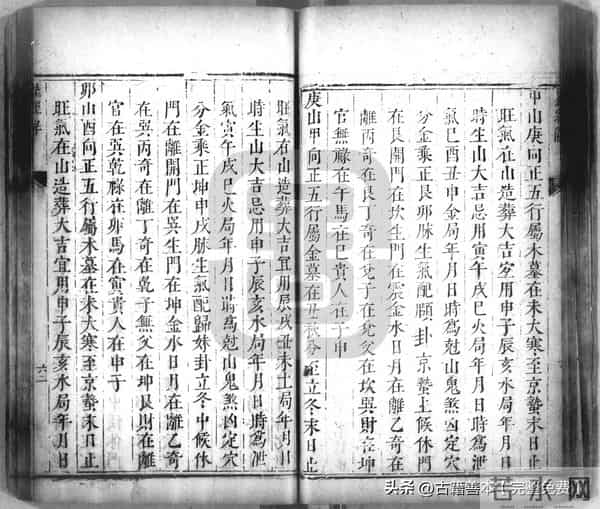 甲山庚向正五行屬木墓在未大寒至京蟄末日止
旺氣在山造葬大吉宜用申子辰亥水局年月日
時生山大吉忌用寅午戌巳火局年月日時爲泄
氣巳酉丑申金局年月日時爲尅山鬼煞凶定穴
分金乘正艮卯脉生氣配頤卦京蟄上候休門
在艮開門在坎生門在震金水日月在離乙奇在
離丙奇在艮丁奇在兌子在兌父在坎巽財在坤
官無祿在午馬在巳貴人在子申
庚山甲向正五行屬金墓在丑秋分至立冬末日止
旺氣在山造葬大吉宜用辰戌丑未土局年月日
時生山大吉忌用申子辰亥水局年月日時爲泄
氣寅午戌巳火局年月日時爲尅山鬼煞凶定穴
分金乘正坤申戌脉生氣配歸妹卦立冬中候休
門在離開門在巽生門在坤金水日月在離乙奇
在巽丙奇在離丁奇在乾子無父在坤艮財在離
官在巽乾祿在卯馬在寅貴人在申子
卯山酉向正五行屬木墓在未大寒至京蟄末日止
旺氣在山造葬大吉宜用申子辰亥水局年月日
六二
头条 @古籍善本 完整免费